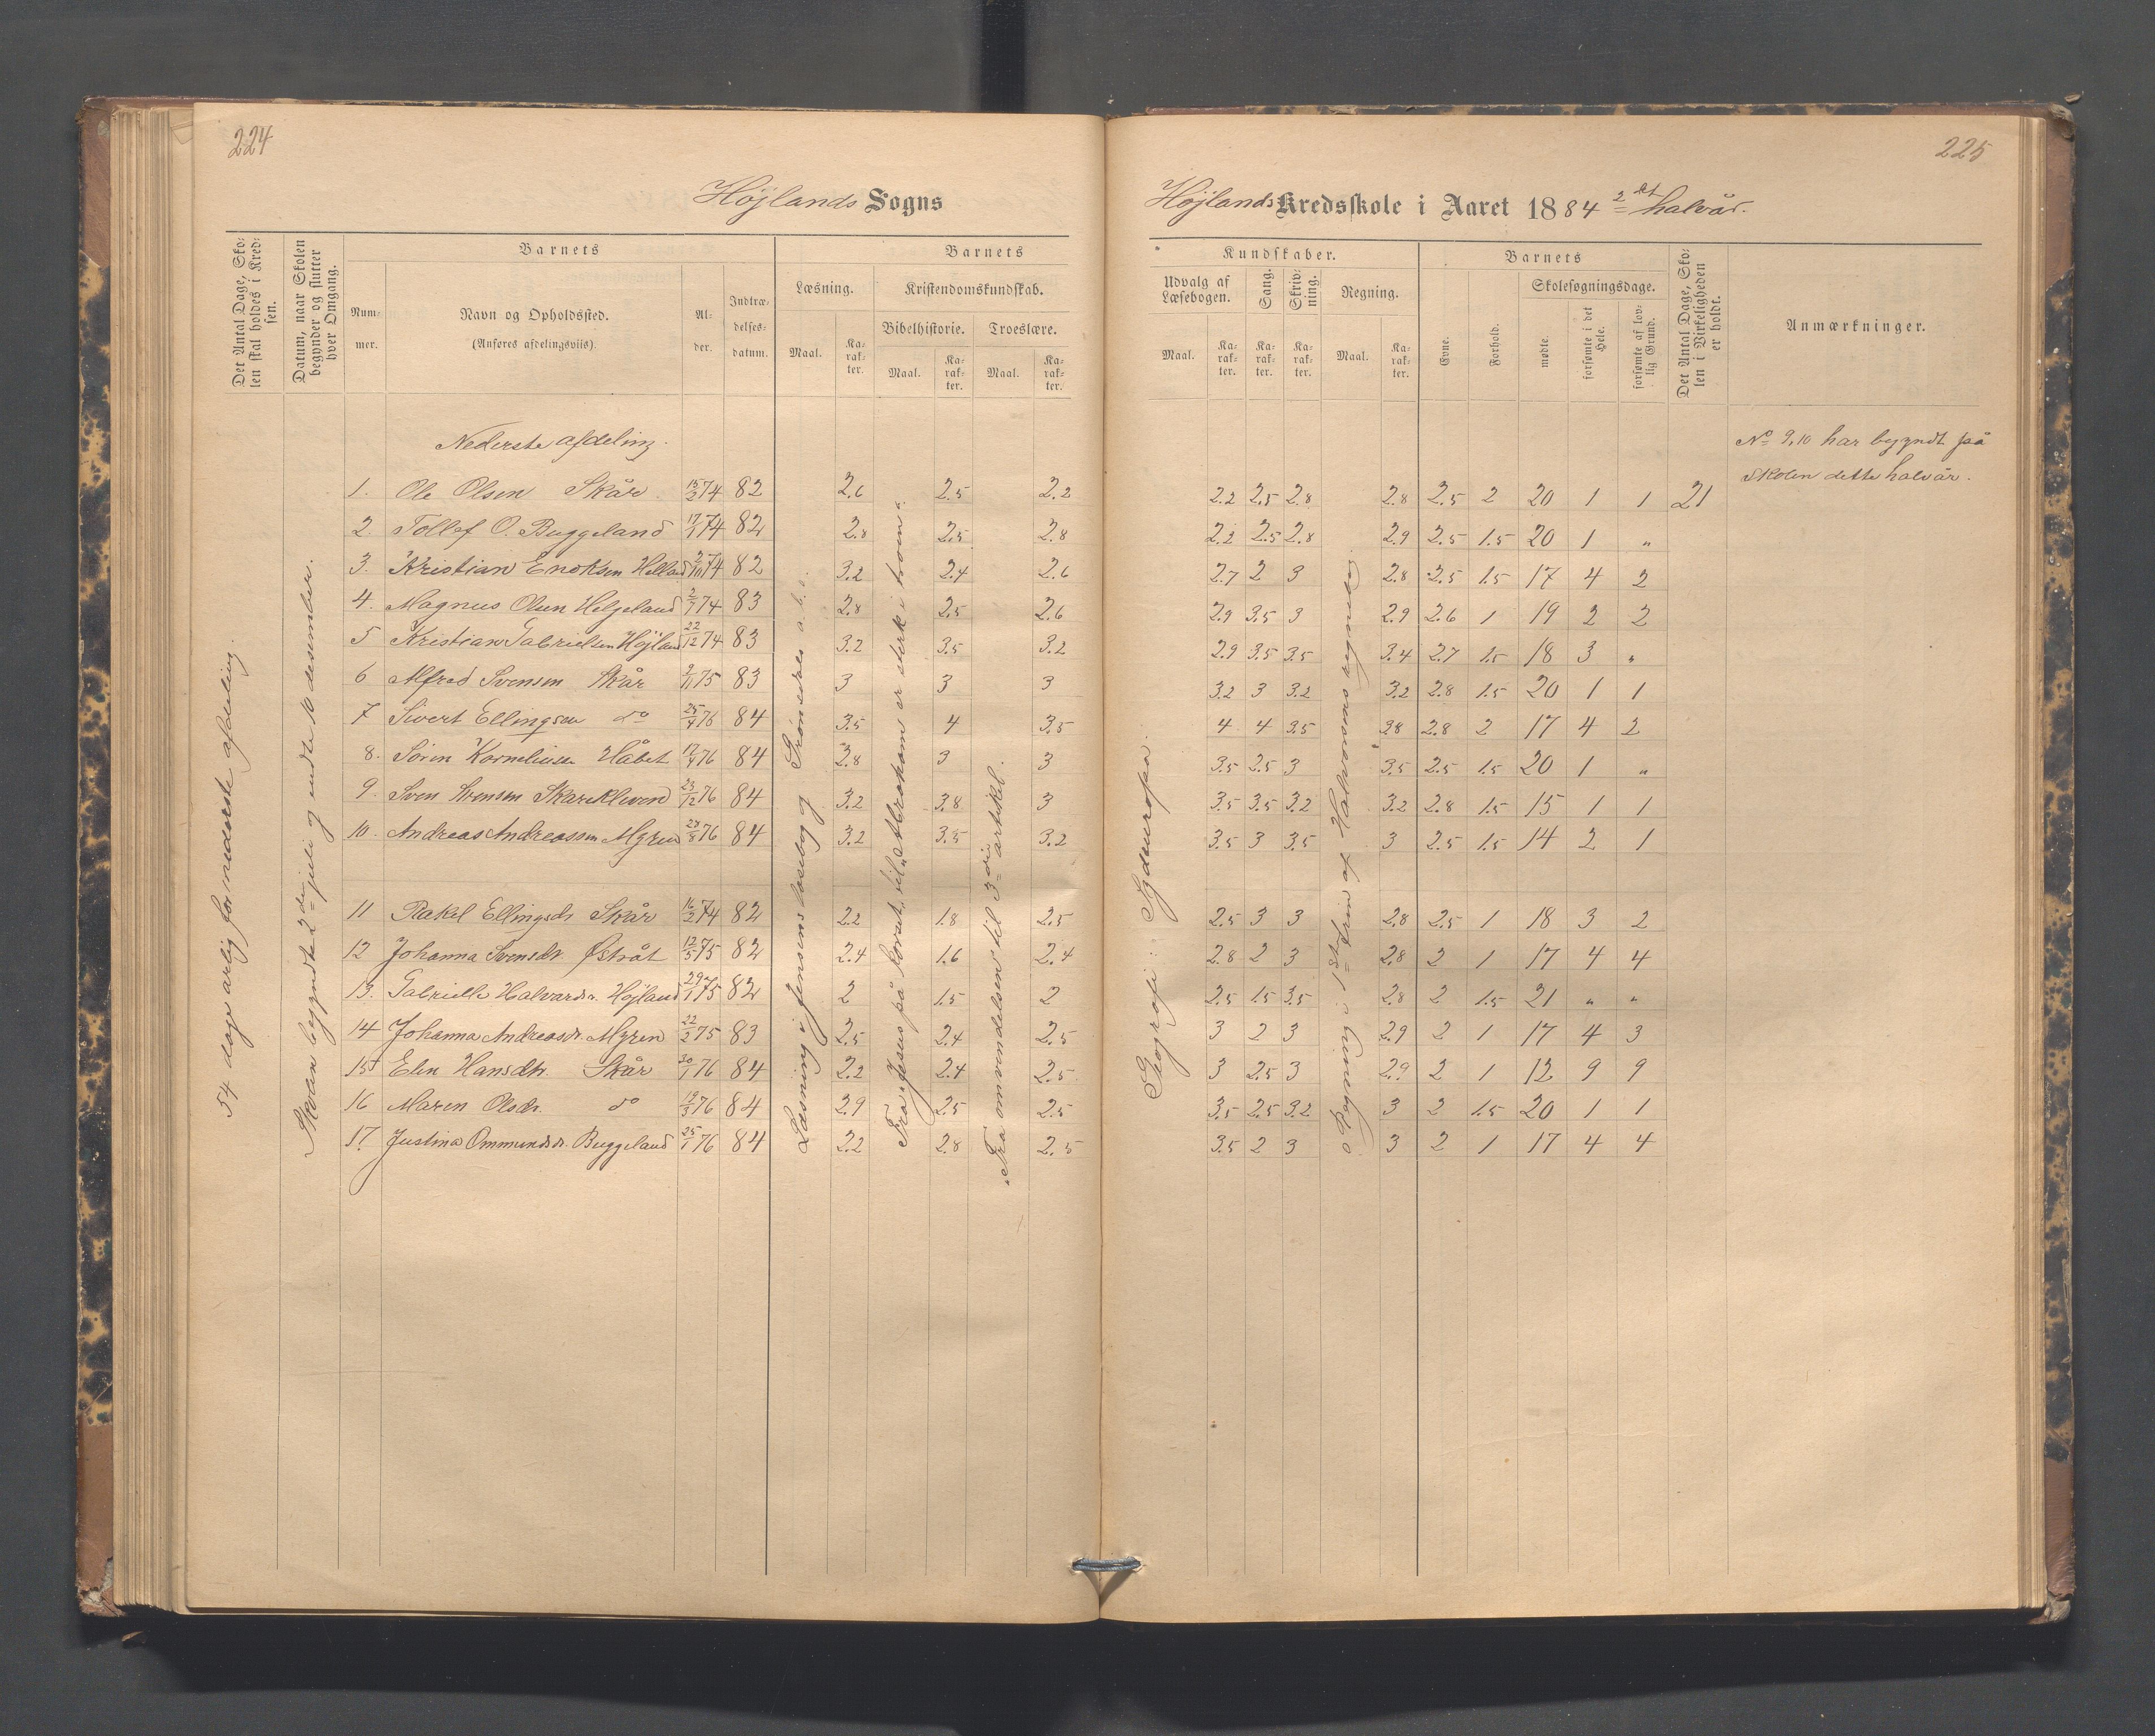 224
225
Höjlands Sogns
Höjlands Kredsskole i Aaret 1884 2det halvår.
Det Antal Dage, Skolen skal holdes i Kredsen.
Datum, naar Skolen begynder og slutter hver Omgang.
Barnets
Nummer.
Navn og Opholdssted.
(Anføres afdelingsviis).
Alder.
Indtrædelsesdatum.
Barnets
Læsning.
Maal.
Karakter.
Kristendomskundskab.
Bibelhistorie.
Maal.
Karakter.
Troeslære.
Maal.
Karakter.
Kundskaber.
Udvalg af Læsebogen.
Maal.
Karakter.
Sang.
Karakter.
Skrivning.
Karakter.
Regning.
Maal.
Karakter.
Barnets
Evne.
Forhold.
Skolesøgningsdage.
mødte.
forsømte i det Hele.
forsømte af lovlig Grund.
Det Antal Dage, Skolen i Virkeligheden er holdt.
Anmærkninger.
Nederste afdeling.
No 9, 10 har begyndt på
skolen dette halvår.
1. Ole Olsen Skår 15/2 74 82 2.6 2.5 2.2 2.2 2.5 2.8 2.8 2.5 2 20 1 1 21
2. Tollef O. Buggeland 17/1 74 82 2.8 2.5 2.8 2.2 2.5 2.8 2.9 2.5 1.5 20 1 "
3. Kristian Enoksen Helland 2/10 74 82 3.2 2.4 2.6 2.7 2 3 2.8 2.5 1.5 17 4 2
4. Magnus Olsen Helgeland 2/7 74 83 2.8 2.5 2.6 2.9 3.5 3 2.9 2.6 1 19 2 2
5 Kristian Gabrielsen Höjland 22/12 74 83 3.2 3.5 3.2 2.9 3.5 3.5 3.4 2.7 1.5 18 3 "
6 Alfred Svensen Skår 2/11 75 83 3 3 3 3.2 3 3.2 3.2 2.8 1.5 20 1 1
7 Sivert Ellingsen do 25/4 76 84 3.5 4 3.5 4 4 3.5 3.8 2.8 2 17 4 2
8. Sören Korneliusen Håbet 17/4 76 84 2.8 3 3 3.5 2.5 3 3.5 2.5 1.5 20 1 "
9. Sven Svensen Skarekleven 23/12 76 84 3.2 3.8 3 3.5 3.5 3.2 3.2 2.8 1.5 15 1 1
10. Andreas Andreassen Myren 28/8 76 84 3.2 3.5 3.2 3.5 3 3.5 3 2.5 1.5 14 2 1
11 Rakel Ellingsdr Skår 16/2 74 82 2.2 1.8 2.5 2.5 3 3 2.8 2.5 1 18 3 2
12 Johanna Svensdr. Østråt 12/5 75 82 2.4 1.6 2.4 2.8 2 3 2.8 2 1 17 4 4
13. Gabrielle Halvardsr. Höjland 29/1 75 82 2 1.5 2 2.5 1.5 3.5 2.8 2 1.5 21 " "
14 Johanna Andreasdr. Myren 22/2 75 83 2.5 2.4 2.5 3 2 3 2.9 2 1 17 4 3
15 Elen Hansdtr. Skår 30/1 76 84 2.2 2.4 2.5 3 2.5 3 2.9 2 1 12 9 9
16 Maren Olsdr. do 19/3 76 84 2.9 2.5 2.5 3.5 2.5 3.2 3 2 1.5 20 1 1
17. Justina Ommundsdr. Buggeland 25/1 76 84 2.2 2.8 2.5 3.5 2 3 3 2 1 17 4 4
54 dage årlig for nederste afdeling.
Skolen begyndte 2den juli og endte 10 desember.
Læsning i Jensens læsebog og
Fra "Jesus på korset" til "Abraham er sterk i troen".
"Fra omvendelsen" til 3die artikel.
Geografi: Sydeuropa.
Regning i 1ste trin af Halvorsens regnebog.